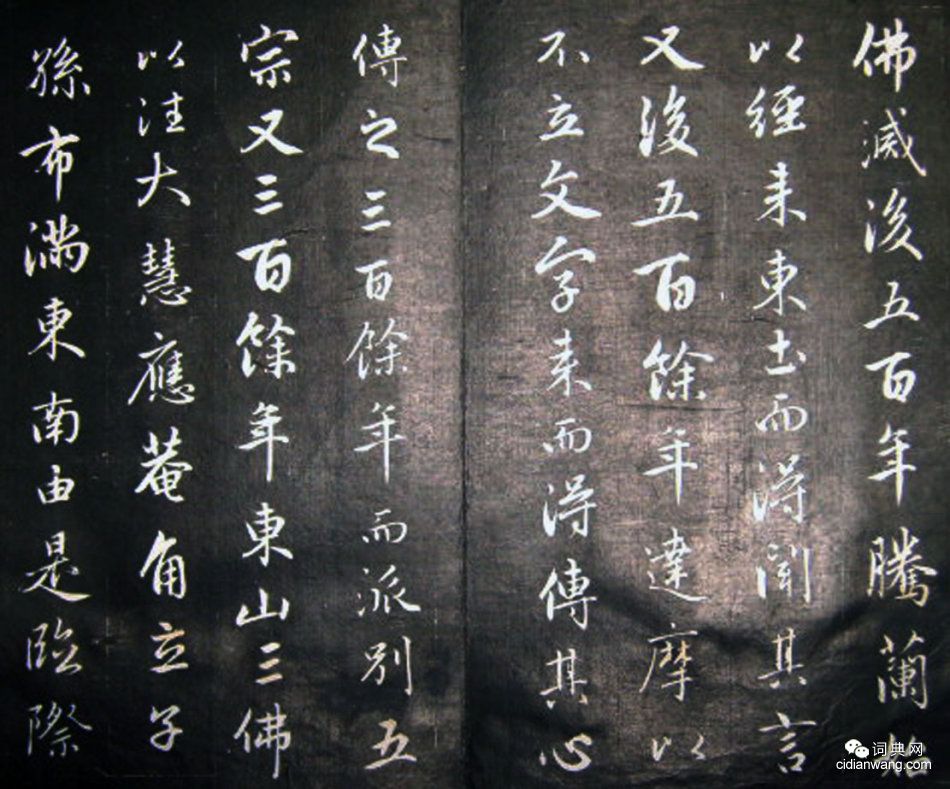 佛滅後五百年騰蘭始
以經来東土而得聞其言
又後五百餘年達摩以
不立文字来而得傳其心
傳之三百餘年而派別五
宗又三百餘年東山三佛
以往大慧應菴角立子
孫布滿東南由是臨際
词典网
cidianwang.com